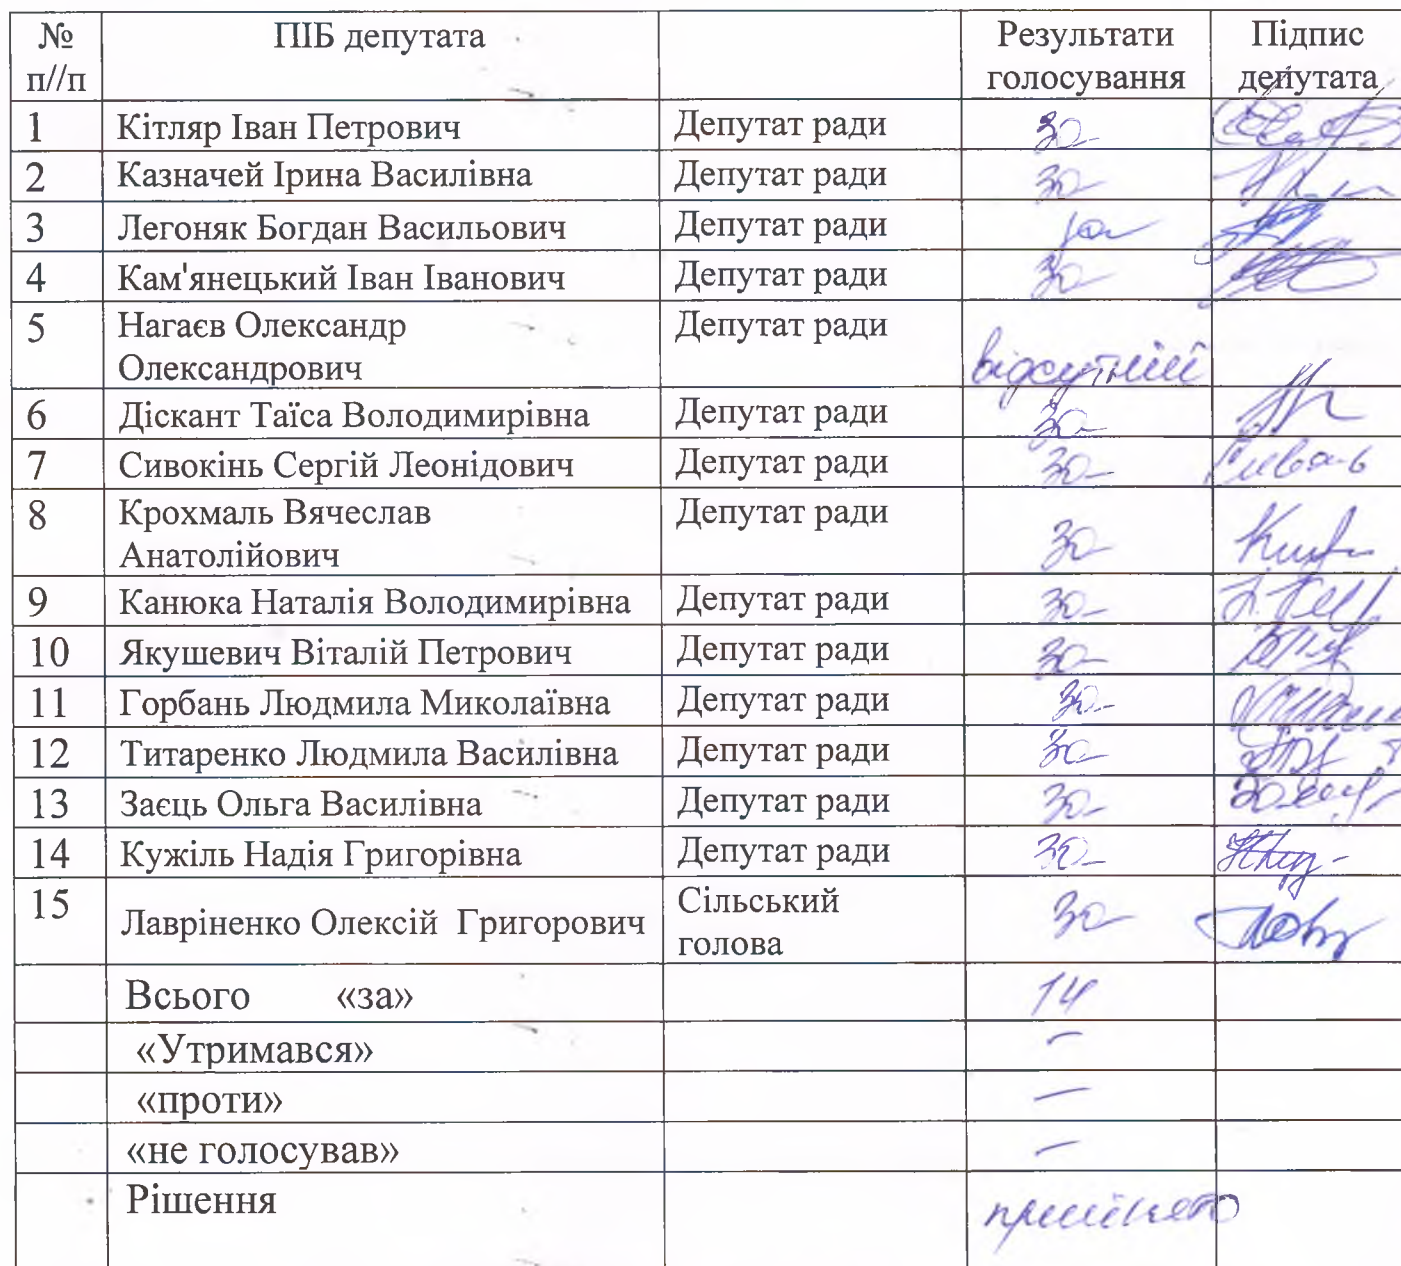 № ПІБ депутата Результати Підпис
п//п голосування депутата
1 Кітляр Іван Петрович Депутат ради за
2 Казначей Ірина Василівна Депутат ради за
3 Легоняк Богдан Васильович Депутат ради за
4 Кам'янецький Іван Іванович Депутат ради за
5 Нагаєв Олександр Депутат ради
Олександрович відсутній
6 Діскант Таїса Володимирівна Депутат ради за
7 Сивокінь Сергій Леонідович Депутат ради за
8 Крохмаль Вячеслав Депутат ради
Анатолійович за
9 Канюка Наталія Володимирівна Депутат ради за
10 Якушевич Віталій Петрович Депутат ради за
11 Горбань Людмила Миколаївна Депутат ради за
12 Титаренко Людмила Василівна Депутат ради за
13 Заєць Ольга Василівна Депутат ради за
14 Кужіль Надія Григорівна Депутат ради за
15 Лавріненко Олексій Григорович Сільський за
голова
Всього «за» 14
«Утримався» –
«проти» –
«не голосував» –
Рішення прийнято